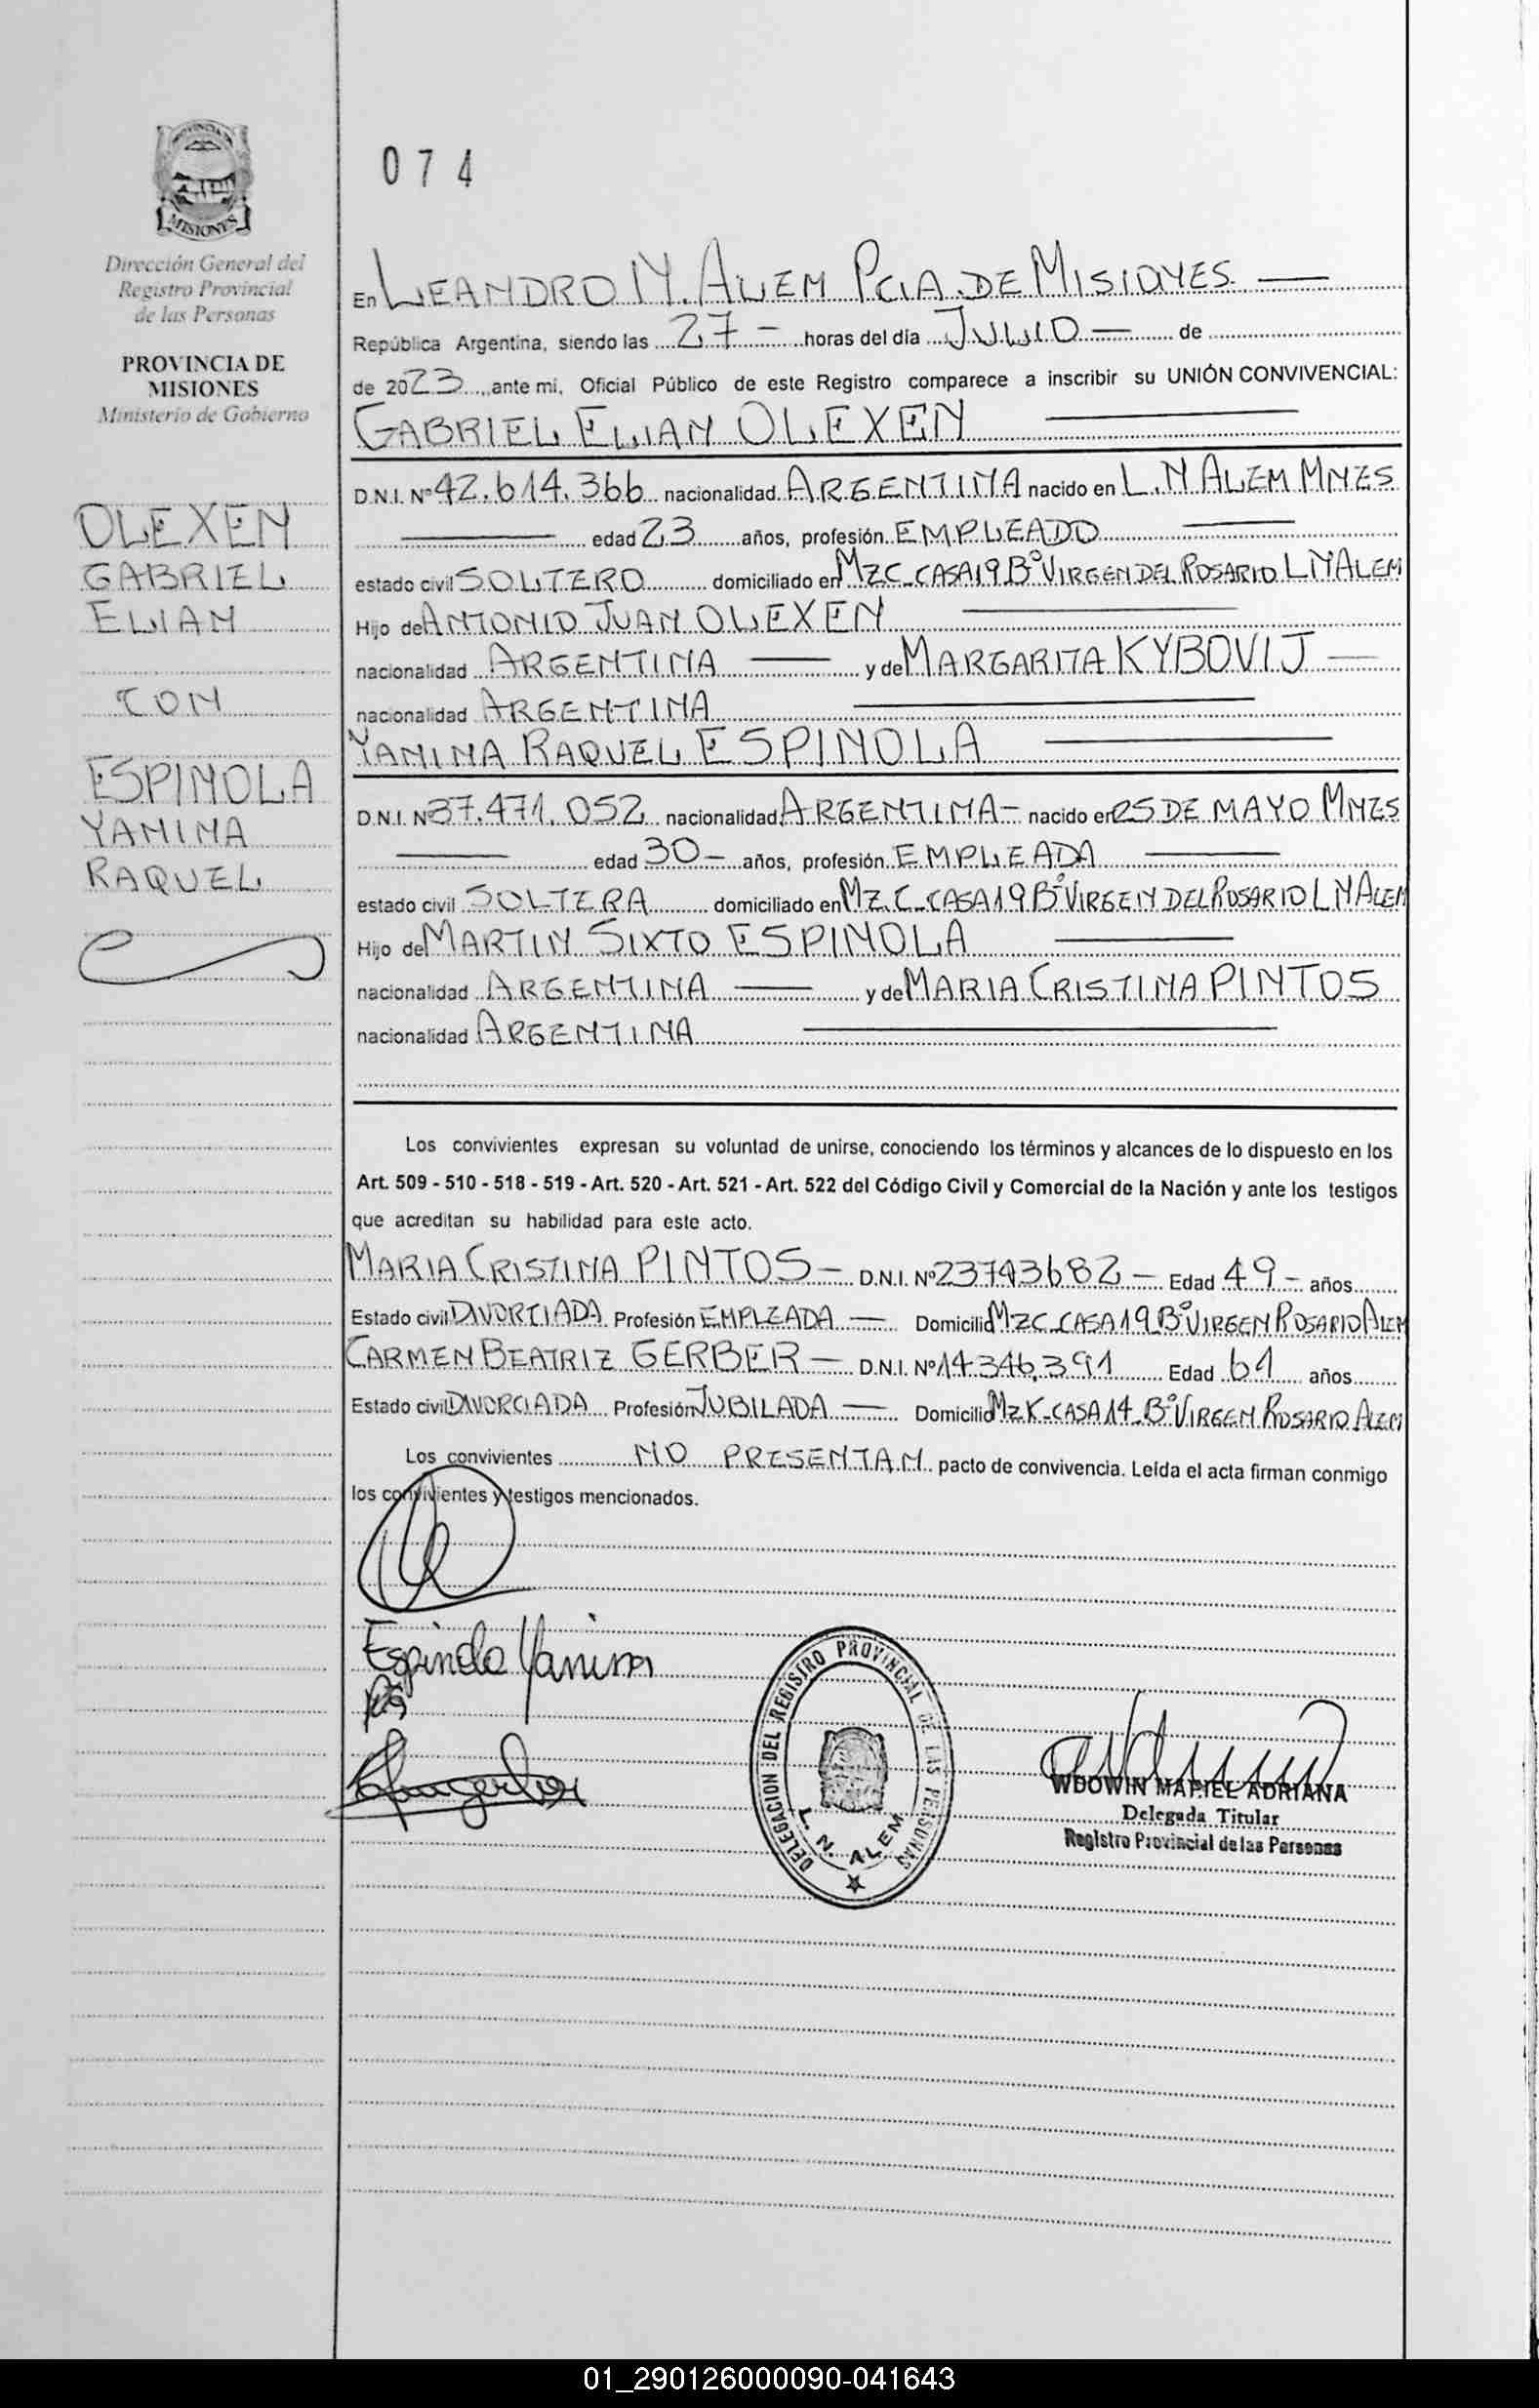 PROVINCIA DE
MISIONES
Dirección General del
Registro Provincial
de las Personas
PROVINCIA DE
MISIONES
Ministerio de Gobierno
OLEXEN
GABRIEL
ELIAN
CON
ESPINOLA
YANINA
RAQUEL
074
En LEANDRO N. ALEM PCIA. DE MISIONES
República Argentina, siendo las 27 horas del día JULIO de
de 2023, ante mi, Oficial Público de este Registro comparece a inscribir su UNIÓN CONVIVENCIAL:
GABRIEL ELIAN OLEXEN
D.N.I. Nº 42.614.366 nacionalidad ARGENTINA nacido en L.N ALEM MNES
edad 23 años, profesión EMPLEADO
estado civil SOLTERO domiciliado en MZC-CASA19 Bº VIRGEN DEL ROSARIO L N ALEM
Hijo de ANTONIO JUAN OLEXEN
nacionalidad ARGENTINA y de MARGARITA KYBOVIJ
nacionalidad ARGENTINA
YANINA RAQUEL ESPINOLA
D.N.I. Nº 37.471.052 nacionalidad ARGENTINA nacido en 25 DE MAYO MNES
edad 30 años, profesión EMPLEADA
estado civil SOLTERA domiciliado en MZ.C-CASA19 Bº VIRGEN DEL ROSARIO L N ALEM
Hijo de MARTIN SIXTO ESPINOLA
nacionalidad ARGENTINA y de MARIA CRISTINA PINTOS
nacionalidad ARGENTINA
Los convivientes expresan su voluntad de unirse, conociendo los términos y alcances de lo dispuesto en los
Art. 509 - 510 - 518 - 519 - Art. 520 - Art. 521 - Art. 522 del Código Civil y Comercial de la Nación y ante los testigos
que acreditan su habilidad para este acto.
MARIA CRISTINA PINTOS - D.N.I. Nº 23743682 - Edad 49 - años
Estado civil DIVORCIADA Profesión EMPLEADA - Domicilio MZC-CASA19 Bº VIRGEN ROSARIO ALEM
CARMEN BEATRIZ GERBER - D.N.I. Nº 14.346.391 Edad 61 años
Estado civil DIVORCIADA Profesión JUBILADA - Domicilio MZK-CASA14-Bº VIRGEN ROSARIO ALEM
Los convivientes NO PRESENTAN pacto de convivencia. Leída el acta firman conmigo
los convivientes y testigos mencionados.
Espinola Yanina
DELEGACION DEL REGISTRO PROVINCIAL DE LAS PERSONAS
L. N. ALEM
WDOWIN MARIEL ADRIANA
Delegada Titular
Registro Provincial de las Personas
01_290126000090-041643